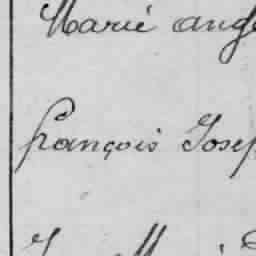 Marie ang
françois Josep